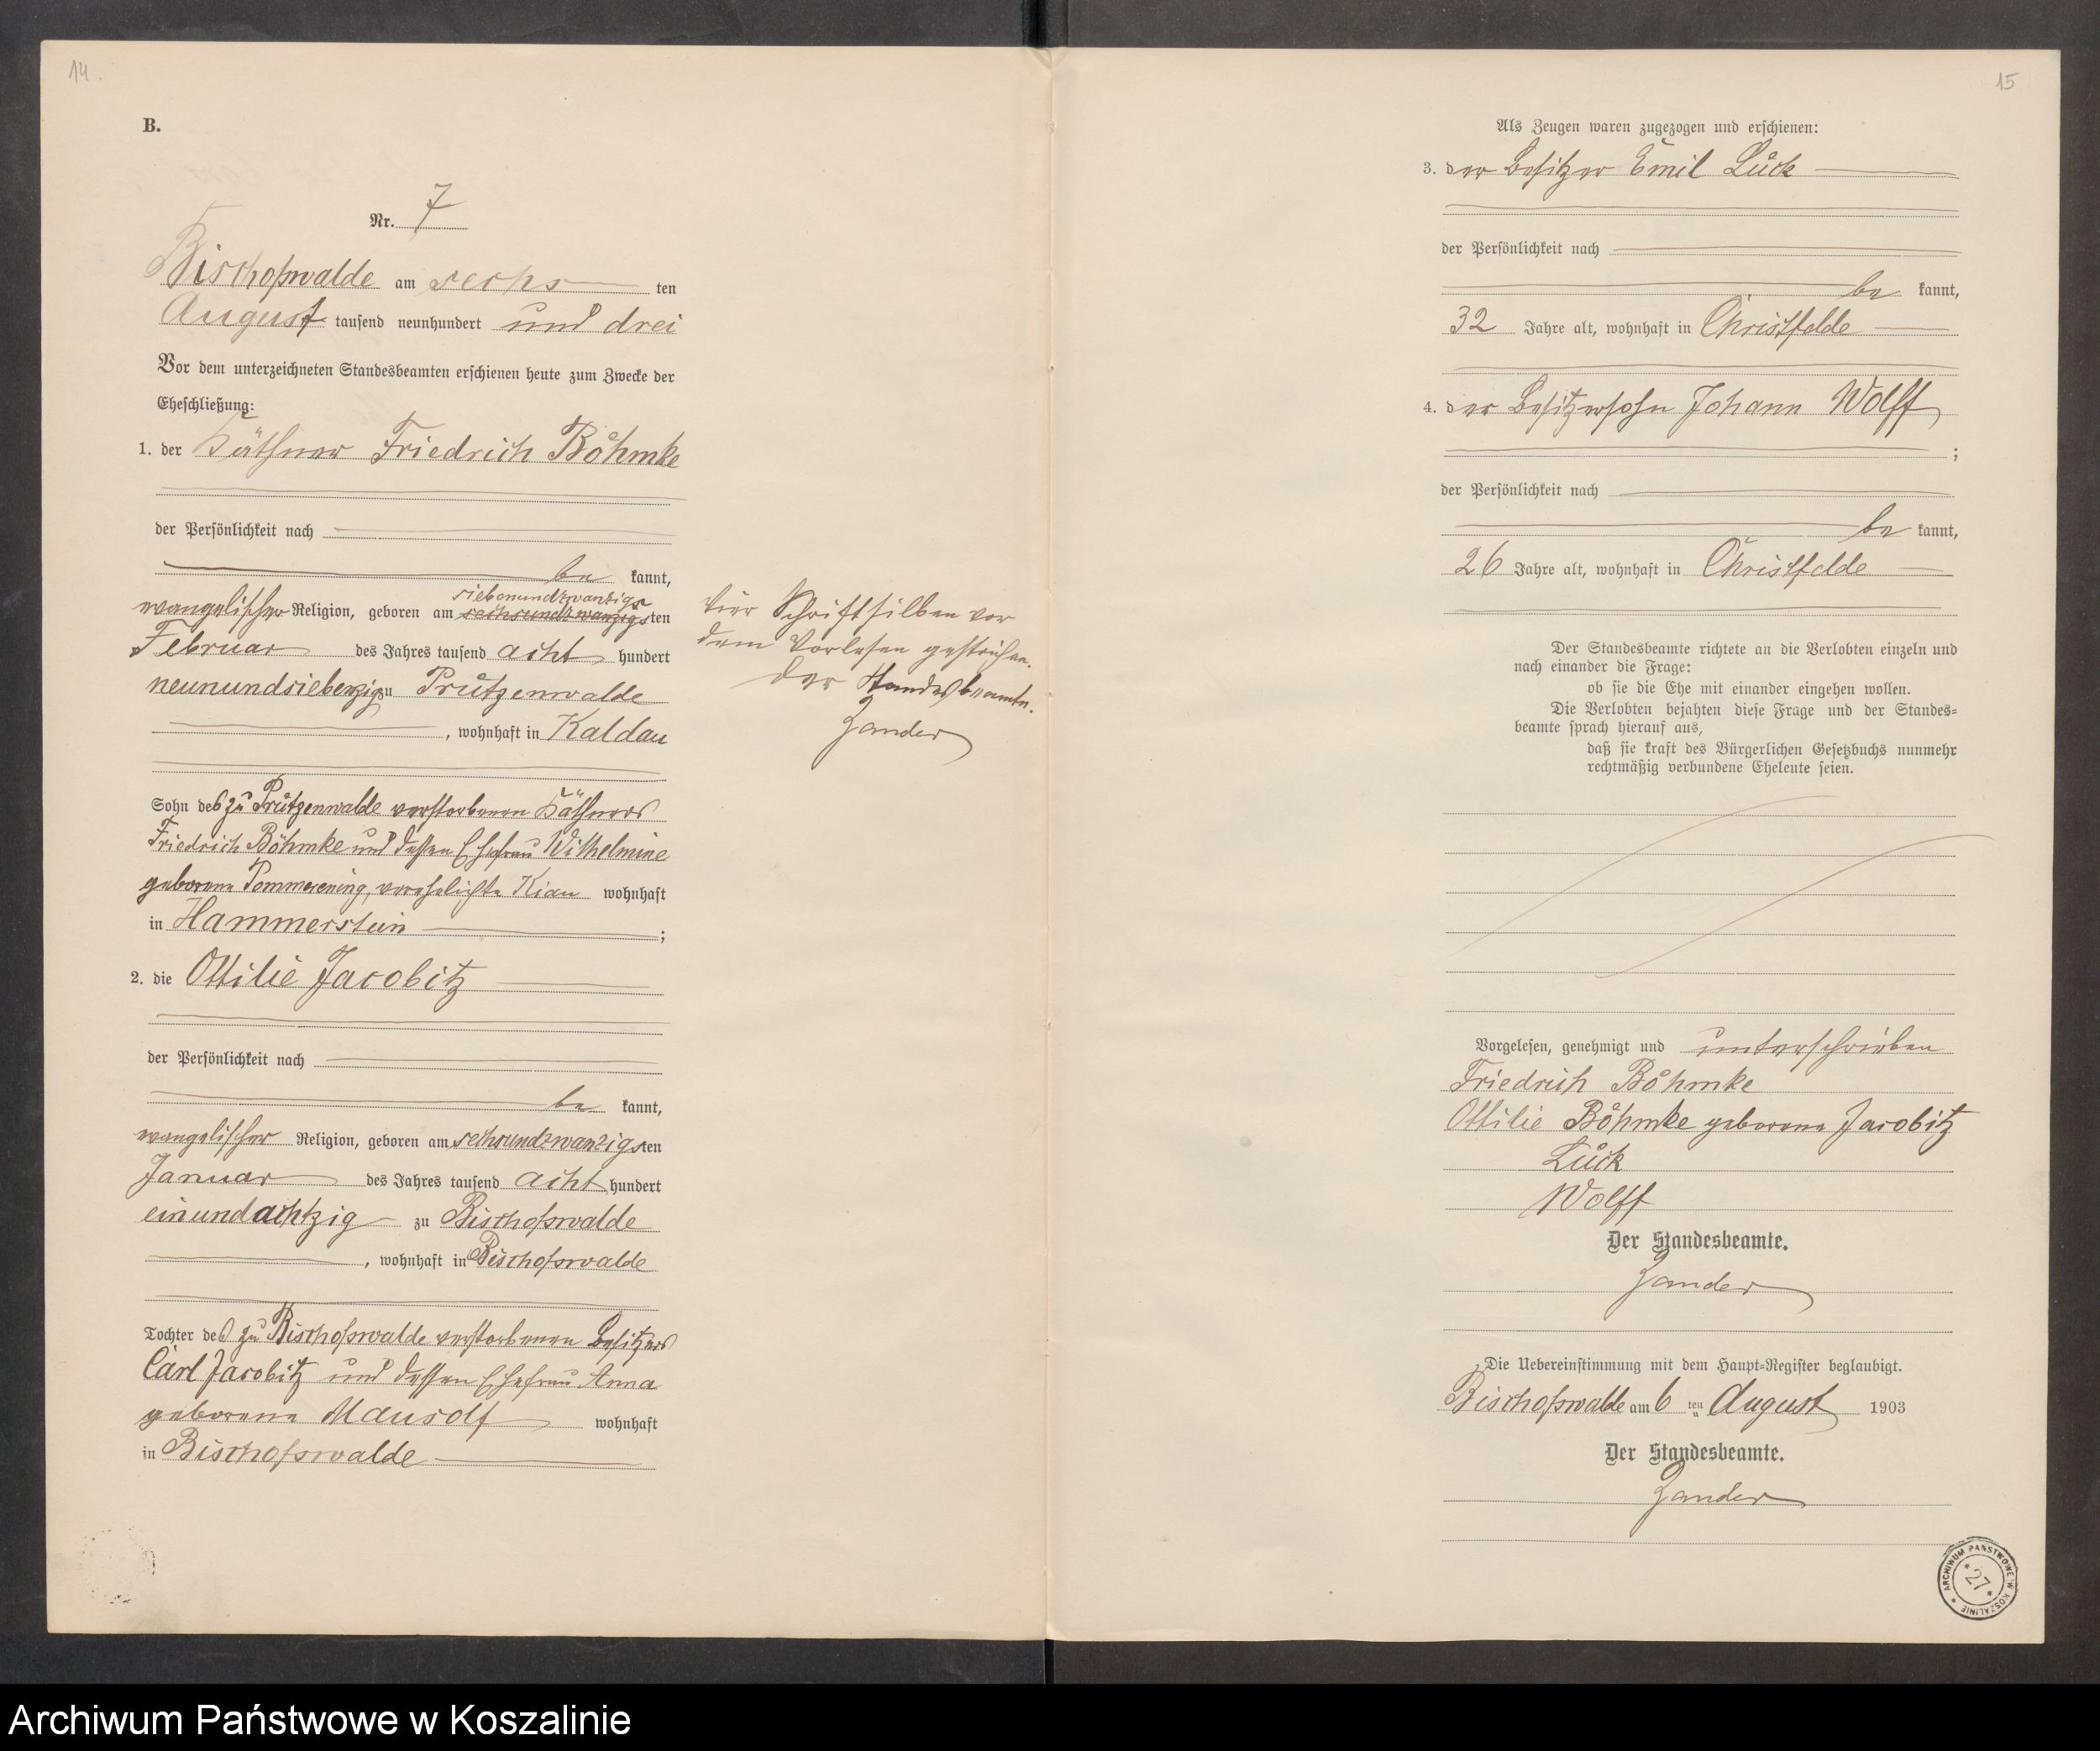 14.
B.
Nr. 7
Bischofswalde am sechs ten
August tausend neunhundert und drei
Vor dem unterzeichneten Standesbeamten erschienen heute zum Zwecke der
Eheschließung:
1. der Käthner Friedrich Böhmke
der Persönlichkeit nach
be kannt,
siebenundzwanzigs
evangelischer Religion, geboren am sechsundzwanzigs ten
Februar des Jahres tausend acht hundert
neunundsiebenzig zu Prützenwalde
, wohnhaft in Kaldau
Sohn des zu Prützenwalde verstorbenen Käthners
Friedrich Böhmke und dessen Ehefrau Wilhelmine
geborene Pommerening, verehelichte Kian wohnhaft
in Hammerstein ;
2. die Ottilie Jacobitz
der Persönlichkeit nach
be kannt,
evangelischer Religion, geboren am sechsundzwanzigs ten
Januar des Jahres tausend acht hundert
einundachtzig zu Bischofswalde
, wohnhaft in Bischofswalde
Tochter des zu Bischofswalde verstorbenen Besitzers
Carl Jacobitz und dessen Ehefrau Anna
geborene Mausolf wohnhaft
in Bischofswalde
Vier Schriftsilben vor
dem Vorlesen gestrichen.
Der Standesbeamte.
Zander
15
Als Zeugen waren zugezogen und erschienen:
3. der Besitzer Emil Lück
der Persönlichkeit nach
be kannt,
32 Jahre alt, wohnhaft in Christfelde
4. der Besitzersohn Johann Wolff
;
der Persönlichkeit nach
be kannt,
26 Jahre alt, wohnhaft in Christfelde
Der Standesbeamte richtete an die Verlobten einzeln und
nach einander die Frage:
ob sie die Ehe mit einander eingehen wollen.
Die Verlobten bejahten diese Frage und der Standes-
beamte sprach hierauf aus,
daß sie kraft des Bürgerlichen Gesetzbuchs nunmehr
rechtmäßig verbundene Eheleute seien.
Vorgelesen, genehmigt und unterschrieben
Friedrich Böhmke
Ottilie Böhmke geborene Jacobitz
Lück
Wolff
Der Standesbeamte.
Zander
Die Uebereinstimmung mit dem Haupt-Register beglaubigt.
Bischofswalde am 6 ten August 1903
Der Standesbeamte.
Zander
ARCHIWUM PAŃSTWOWE W KOSZALINIE
*27*
Archiwum Państwowe w Koszalinie